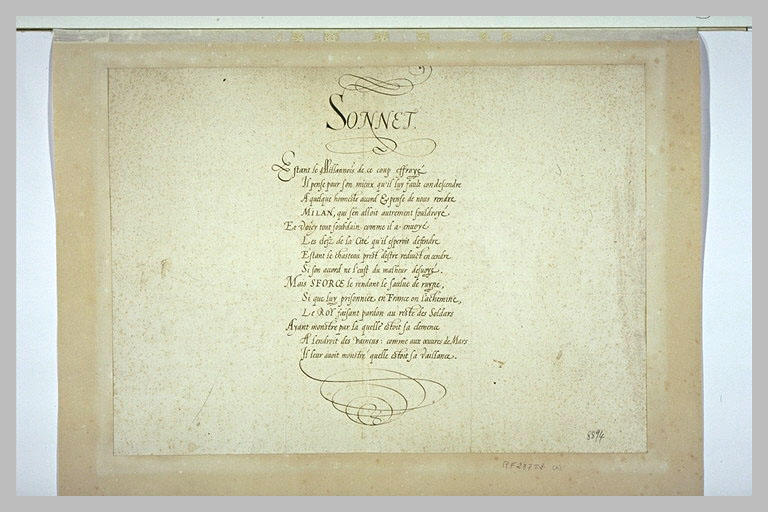 SONNET.
Estant le Millannois de ce coup effroyé
Il pense pour son mieux qu'il luy fault condescendre
A quelque honneste accord & pense de nous rendre
MILAN, qui sen alloit autrement fouldroyé.
En voicy tout soubdain comme il a envoyé
Les clefz de la Cité qu'il esperoit defendre
Estant le chasteau prest destre reduict en cendre
Si son accord ne l'eust du malheur desuoyé.
Mais SFORCE le rendant le saulue de ruyne,
Si que luy prisonnier en France on lachemine,
Le ROY faisant pardon au reste des Soldars
Ayant monstré par la quelle estoit sa clemence
A lendroit des vaincus: comme aux œuvres de Mars
Il leur avoit monstré quelle estoit sa vaillance.
8894